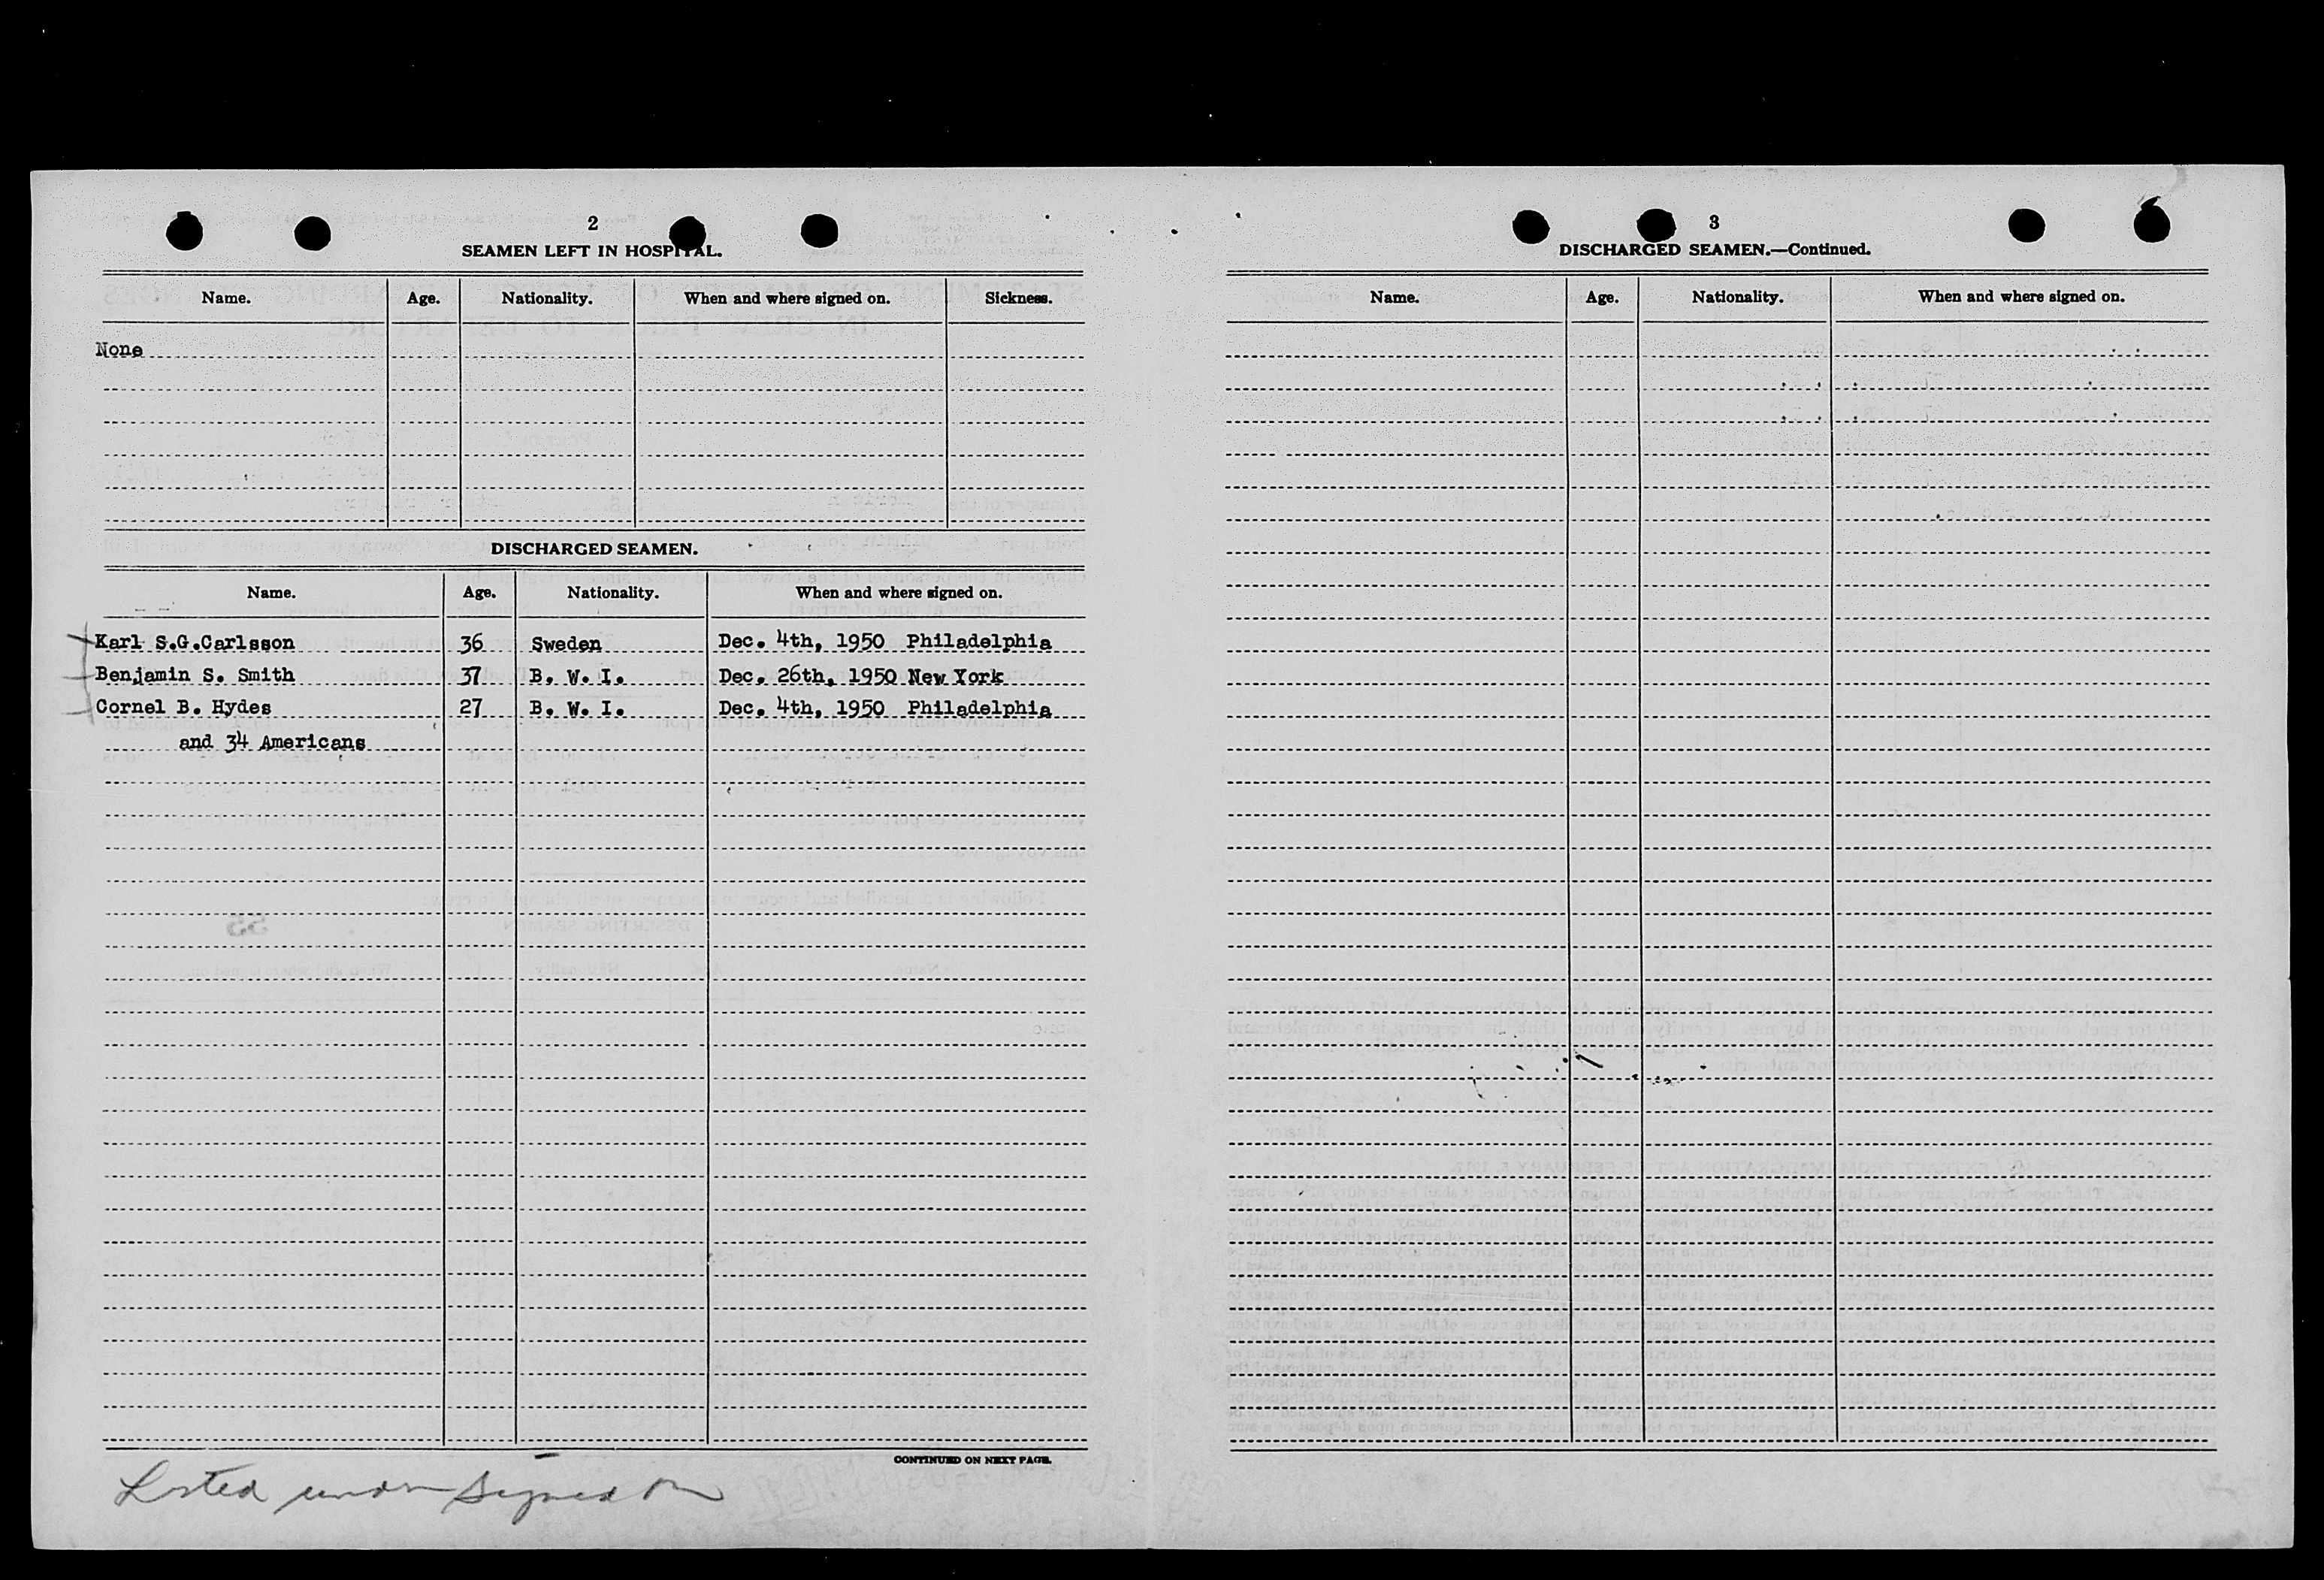 2
SEAMEN LEFT IN HOSPITAL.
Name. Age. Nationality. When and where signed on. Sickness.
None
DISCHARGED SEAMEN.
Name. Age. Nationality. When and where signed on.
Karl S.G.Carlsson 36 Sweden Dec. 4th, 1950 Philadelphia
Benjamin S. Smith 37 B. W. I. Dec. 26th, 1950 New York
Cornel B. Hydes 27 B. W. I. Dec. 4th, 1950 Philadelphia
and 34 Americans
CONTINUED ON NEXT PAGE.
Listed under signed on
3
DISCHARGED SEAMEN.—Continued.
Name. Age. Nationality. When and where signed on.